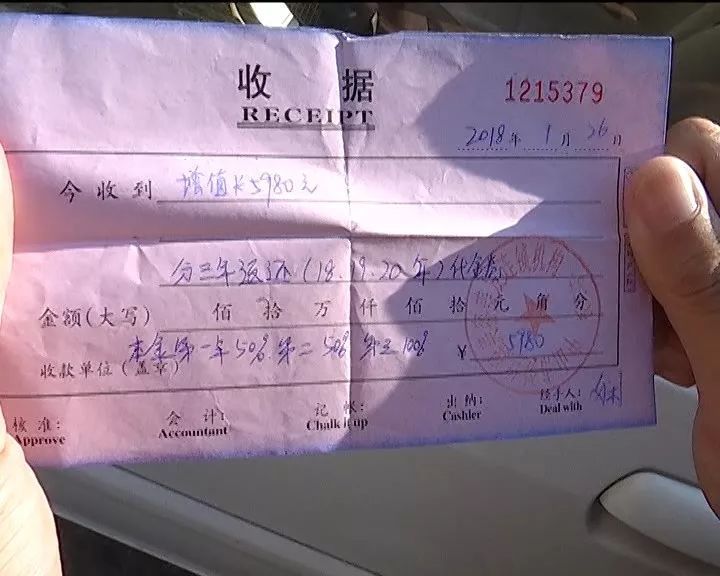 收 据
RECEIPT
1215379
2018年 1月 26日
今收到 增值卡5980元
分三年返还(18.19.20年)代金券
金额(大写) 佰 拾 万 仟 佰 拾 元 角 分
本金第一年50% 第二50% 第三100% ¥ 5980
收款单位(盖章)
核准: 会计: 记帐: 出纳: 经手人:
Approve Accountant Chalk it up Cashler Deal with